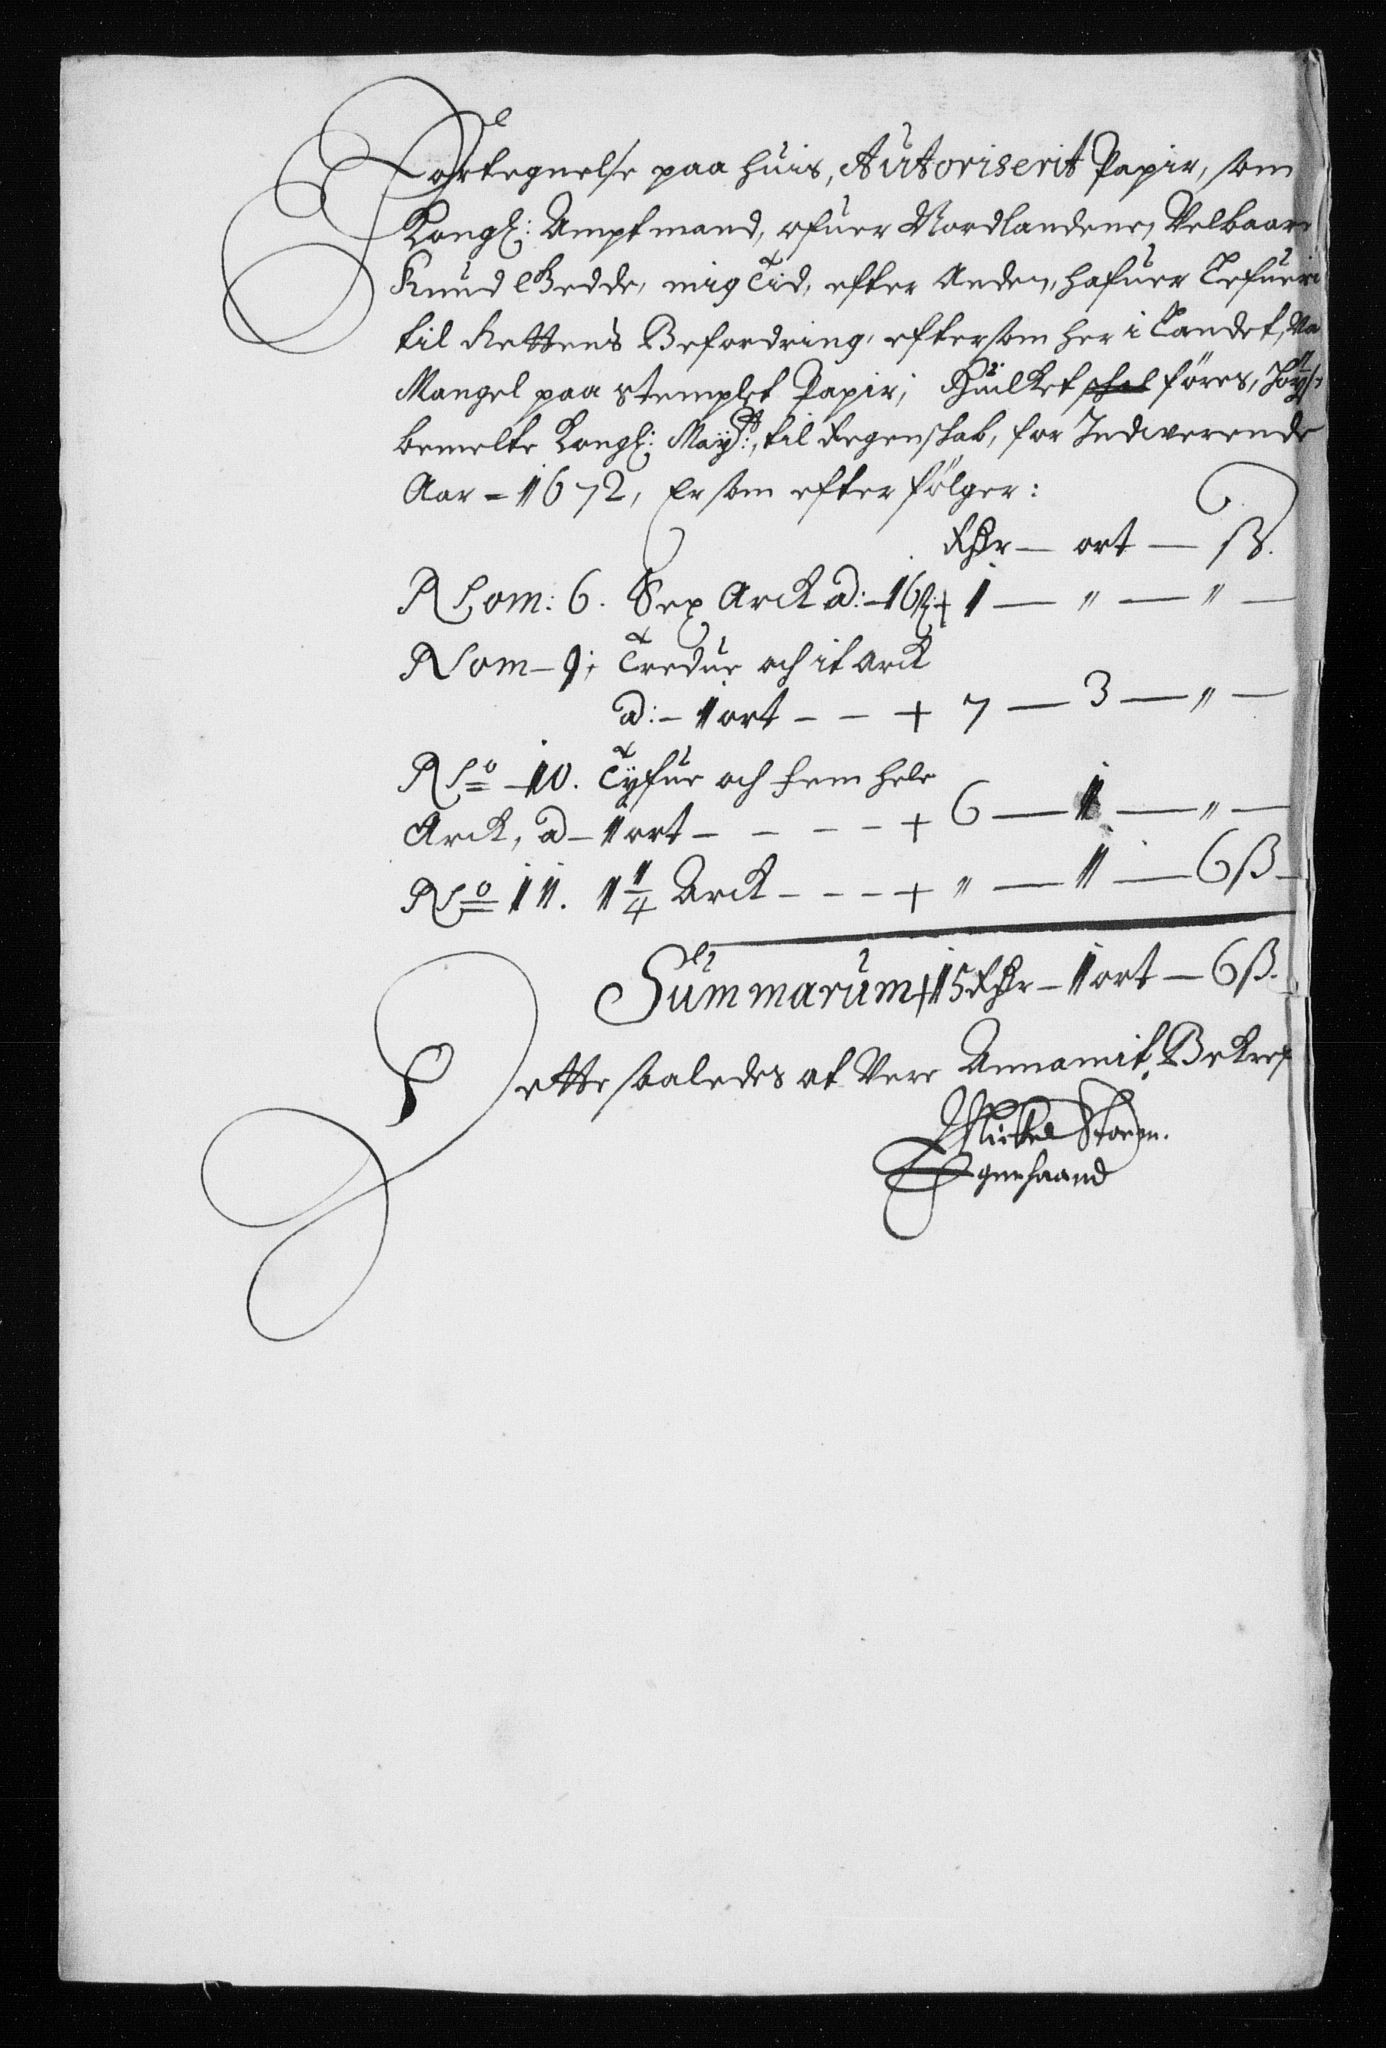 Fortegnelse paa huis, Autoriserit Papir, som
Kongl: Ampt mand, ofuer Nordlandene, Velbaar
Knud Gedde, mig Tid, efter Anden, hafuer Lefueri
til Rettens Befordring, eftersom her i Landet, Va
Mangel paa stemplet Papir; Huilket schal föres, Höy
bemelte Kongl: Mayst:, til Regenskab, for Indwerende
Aar - 1672, Er som efter fölger:
Rdr — ort — ß.
Nom: 6. Sex Arck a: - 16ß: + 1 — " — " —
Nom - 9; Tredue och it arck
a: - 1 ort - - + 7 — 3 — " —
No - 10. Tyfue och fem hele
Arck, a - 1 ort - - - - + 6 — 1 — " —
No 11. 1 1/4 Arck - - - + " — 1 — 6 ß —
Summarum + 15 Rdr — 1 ort — 6 ß.
Dette saaledes at Vere Annamit, Bekref
Mickel Storm.
Egenhaand